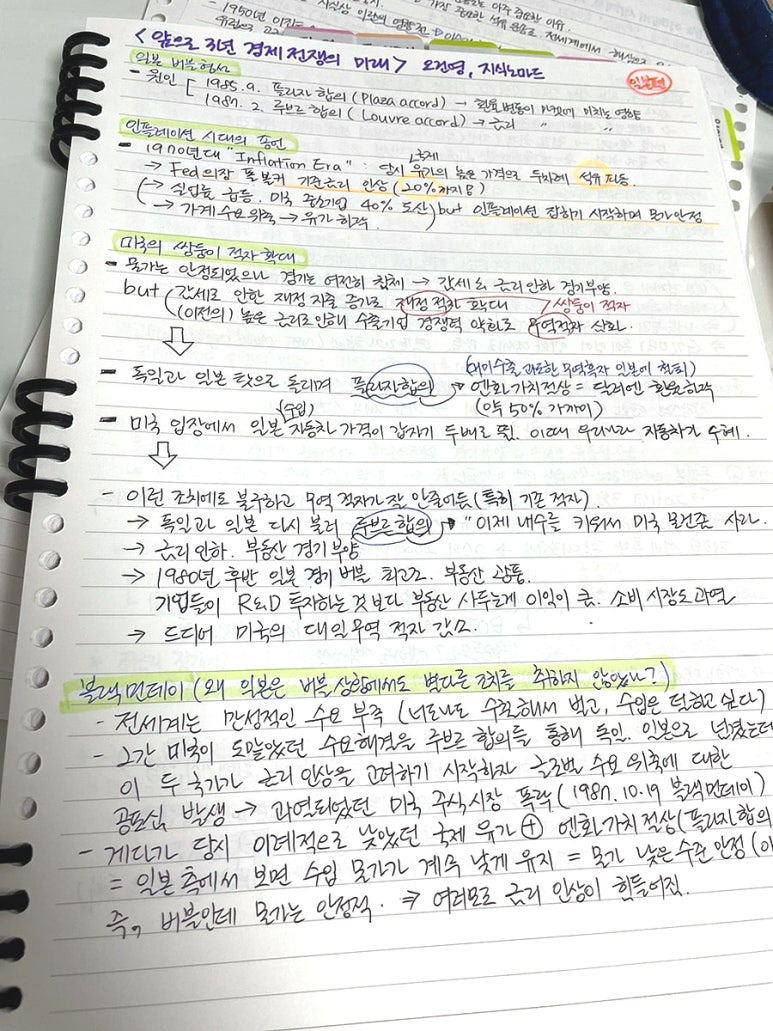 - 1950년 이란
<앞으로 3년 경제 전쟁의 미래> 오건영, 지식노마드
일본편
일본 버블 형성
- 원인 [ 1985. 9. 플라자 합의 (Plaza accord) → 환율 변동이 
1987. 2. 루브르 합의 (Louvre accord) → 금리 〃 〃
인플레이션 시대의 종언
국제
- 1970년대 "Inflation Era" : 당시 유가의 높은 가격으로 석유 파동.
→ Fed의장 폴 볼커 기준금리 인상 (20%까지!!)
→ 실업률 급등. 미국 중소기업 40% 도산 ) but 인플레이션 잡히기 시작하며 물가안정
→ 가계수요 위축 → 유가 하락.
미국의 쌍둥이 적자 확대
- 물가는 안정되었으나 경기는 여전히 침체 → 감세 & 금리인하 경기부양.
but ( 감세로 인한 재정 지출 증가로 재정 적자 확대 쌍둥이 적자
(이전의) 높은 금리로 인해 수출기업 경쟁력 약화로 무역적자 심화.
⇩
(대미수출 과도한 무역흑자 일본에 철퇴)
- 독일과 일본 탓으로 돌리며 플라자합의 → 엔화 가치절상 = 달러엔 환율하락
(약 50% 가까이)
(수입)
- 미국 입장에서 일본 자동차 가격이 갑자기 두배로 뜀. 이때 우리나라 자동차가 수혜.
⇩
- 이런 조치에도 불구하고 무역 적자가 잘 안줄어듦 (특히 기존 적자).
→ 독일과 일본 다시 불러 루브르 합의 → "이제 내수를 키워서 미국 물건좀 사라.
→ 금리인하. 부동산 경기 부양
→ 1980년 후반 일본 경기 버블 최고조. 부동산 광풍.
기업들이 R&D 투자하는 것보다 부동산 사두는게 이익이 큼. 소비 시장도 과열
→ 드디어 미국의 대일무역 적자 감소.
블랙먼데이 (왜 일본은 버블 상황에서도 별다른 조치를 취하지 않았나?)
- 전세계는 만성적인 수요 부족 (너도나도 수출해서 벌고, 수입은 덜하고 싶다)
- 그간 미국이 도맡았던 수요해결을 루브르 합의를 통해 독일. 일본으로 넘겼는데
이 두 국가가 금리 인상을 고려하기 시작하자 글로벌 수요 위축에 대한
공포심 발생 → 과열되었던 미국 주식시장 폭락 (1987. 10. 19 블랙먼데이)
- 게다가 당시 이례적으로 낮았던 국제 유가 ⊕ 엔화 가치절상(플라자 합의
= 일본 측에서 보면 수입 물가가 계속 낮게 유지 = 물가 낮은 수준 안정 (이
즉, 버블인데 물가는 안정적. ⇒ 여러모로 금리 인상이 힘들어짐.